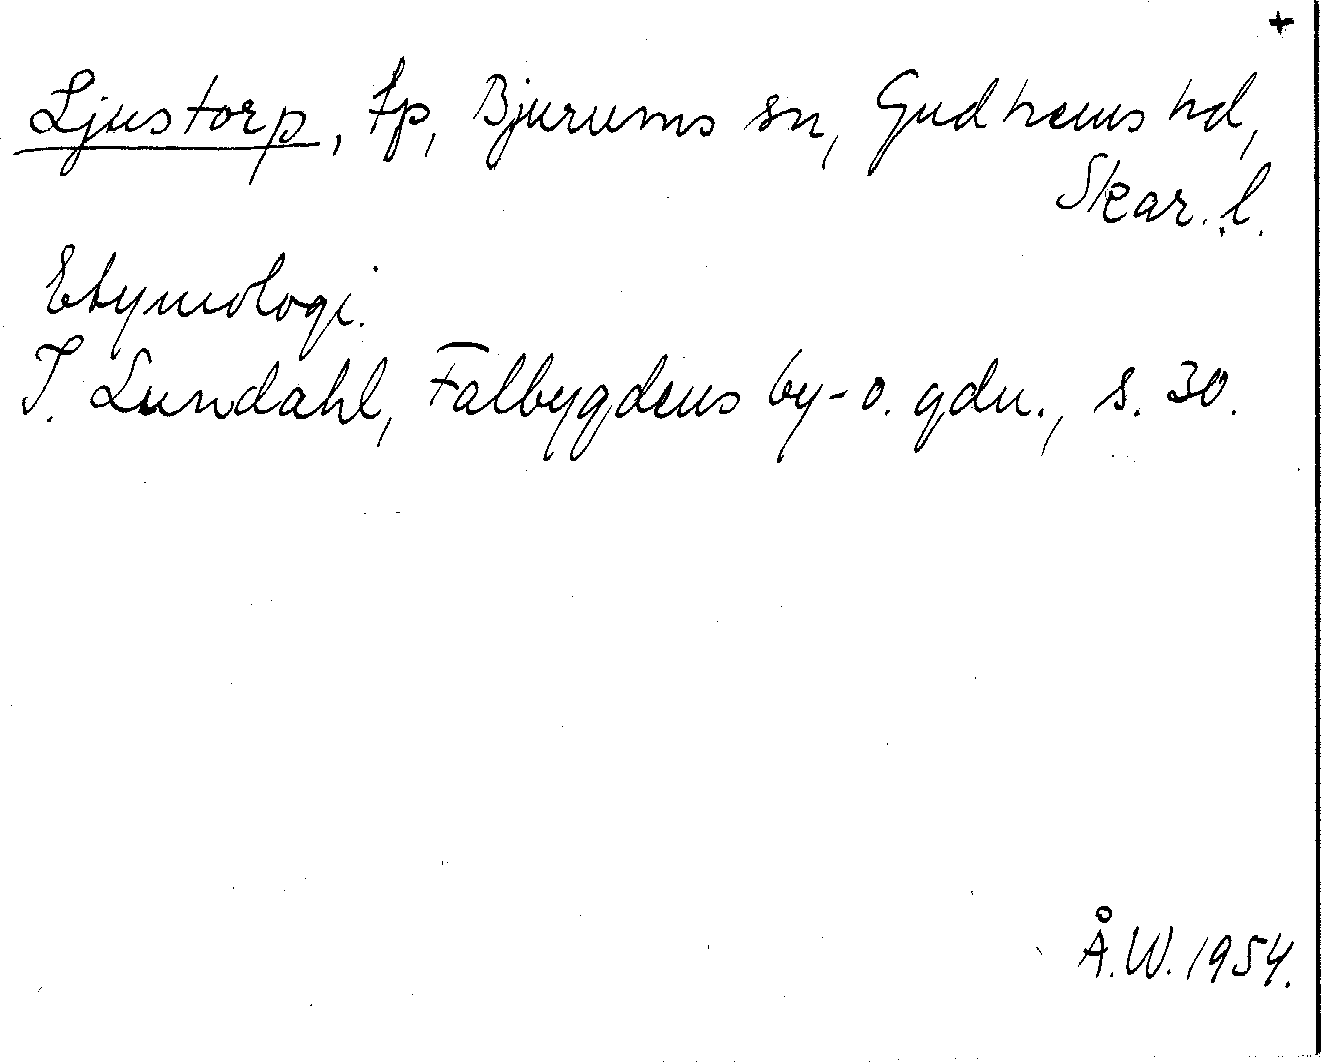 +
Ljustorp, tp, Bjurums sn, Gudhems hd,
Skar. l.
Etymologi.
I. Lundahl, Falbygdens by- o. gdn., s. 30.
Å.W. 1954.